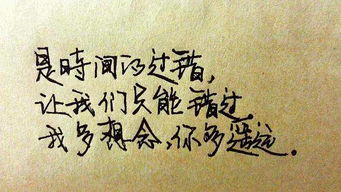 是時间的过错,
让我们只能错过,
我多想念,你多遥远.